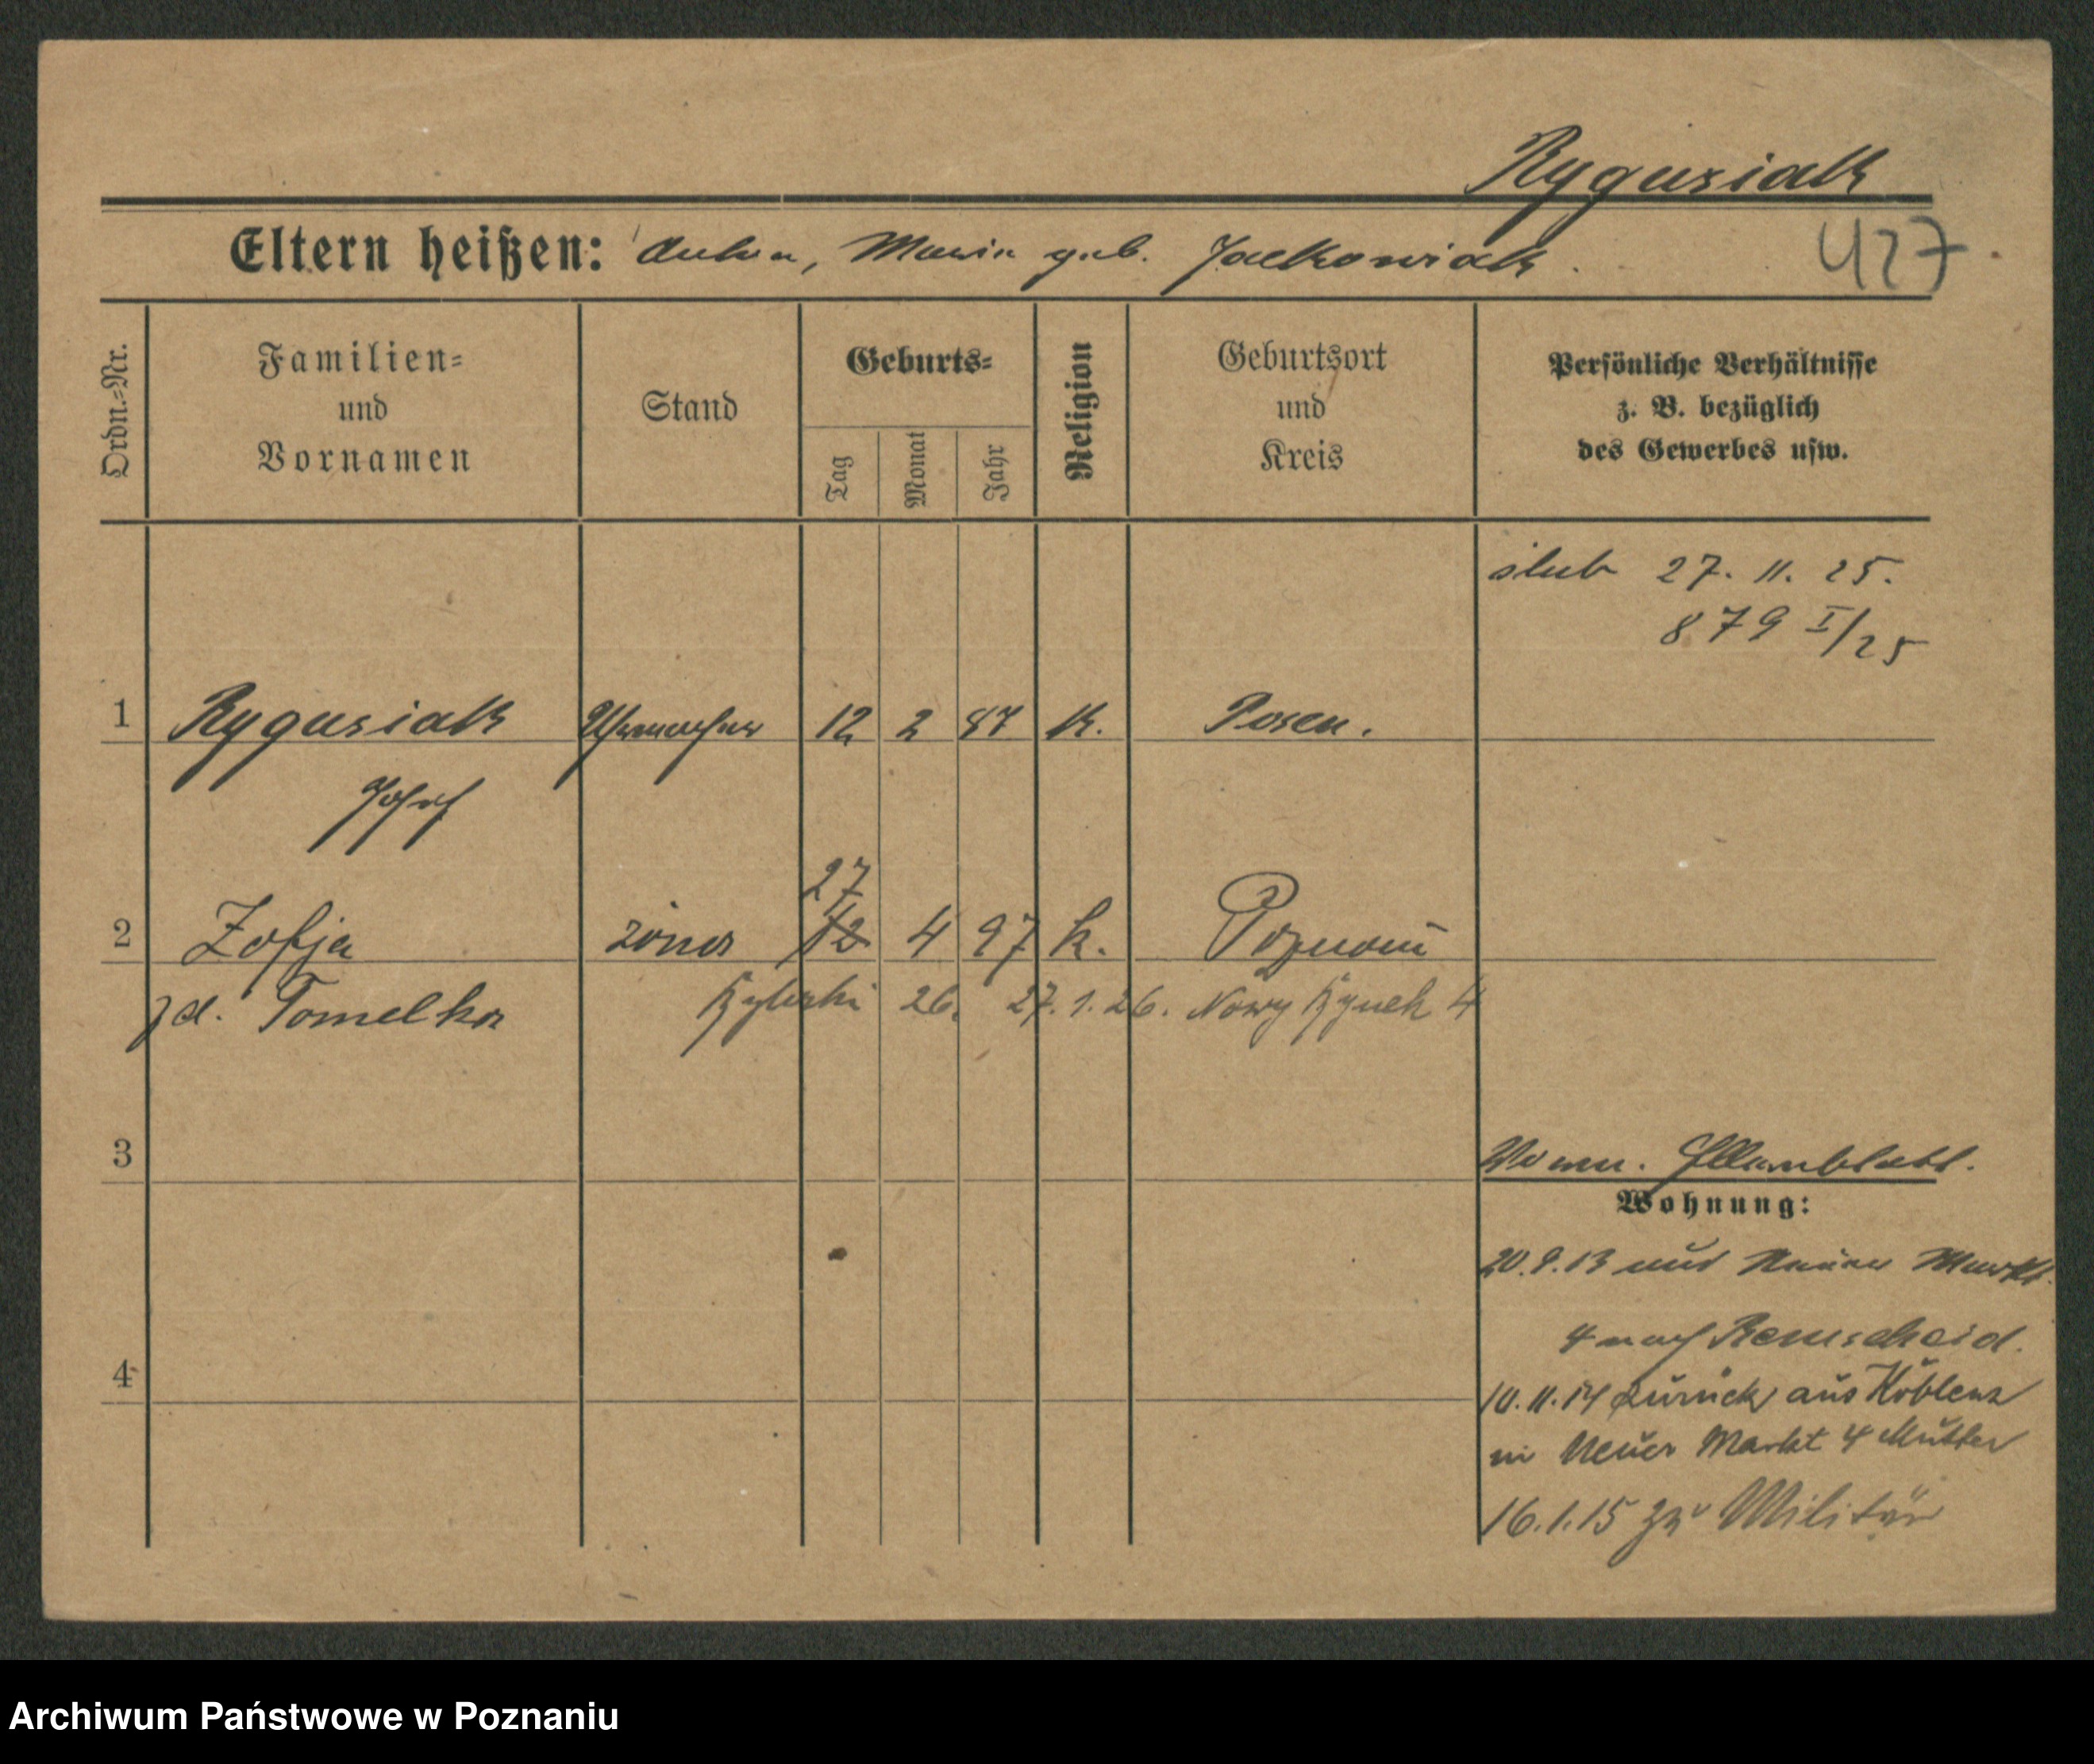 Rygusiak
Eltern heißen: Anton, Maria geb. Jackowiak.
427
Ordn.-Nr.
Familien-
und
Vornamen
Stand
Geburts-
Tag
Monat
Jahr
Religion
Geburtsort
und
Kreis
Persönliche Verhältnisse
z. B. bezüglich
des Gewerbes usw.
ślub 27. 11. 25.
879 I/25
1 Rygusiak Uhrmacher 12 2 87 K. Posen.
Josef
27
2 Zofja żona 12 4 97 k. Poznań
zd. Tomelka
26. 27. 1. 26. Nowy Rynek 4
3
Elternblatt.
Wohnung:
20.9.13 aus Neuen Markt
4 nach Remscheid.
10.11.14 zurück aus Koblenz
in Neuer Markt 4 Mutter
16.1.15 zu Militär
4
Archiwum Państwowe w Poznaniu